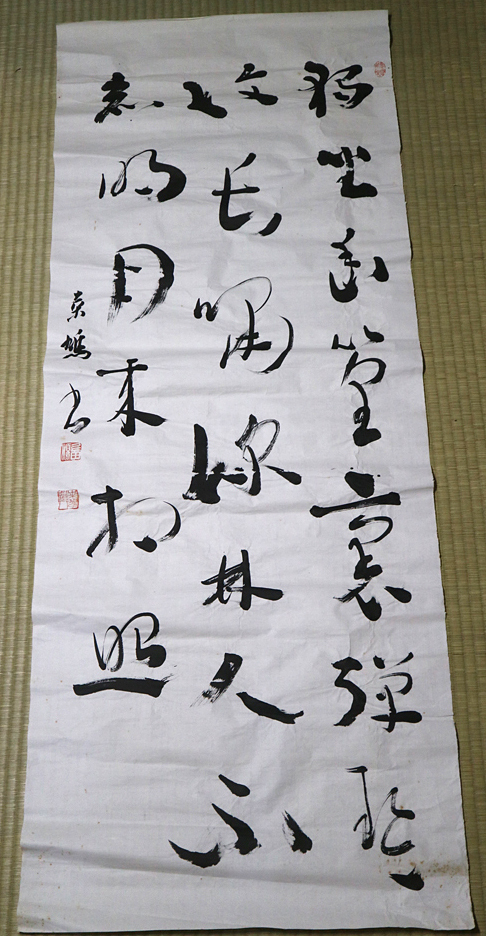 獨坐幽篁裏彈琴
復長嘯深林人不
知明月来相照
桑鳩書